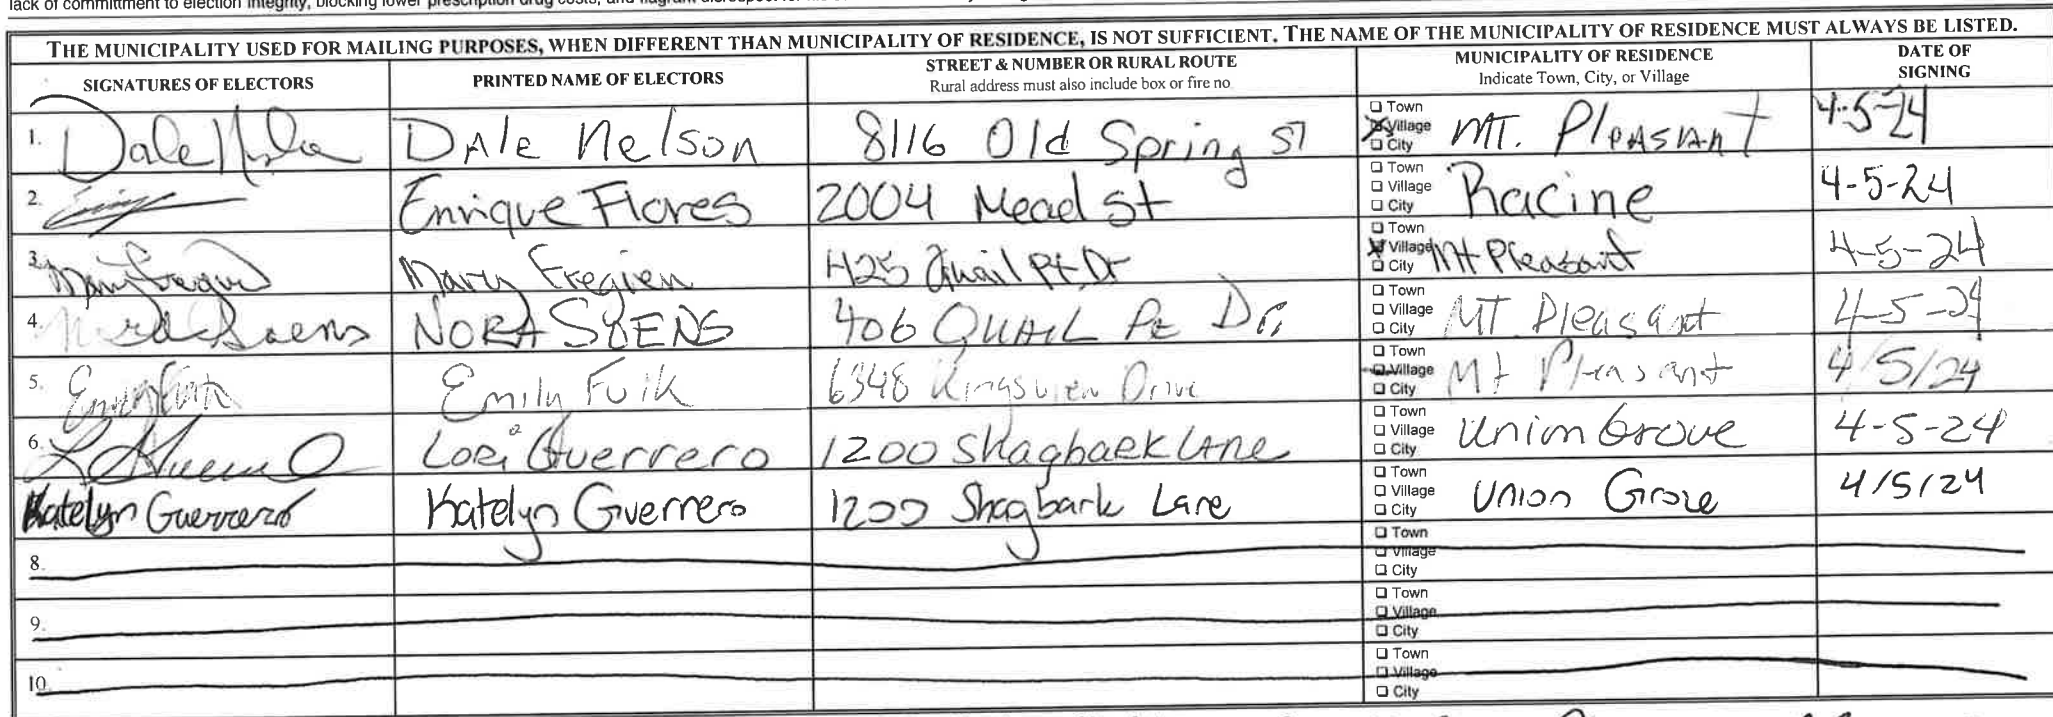 lack of committment to election integrity, blocking lower prescription drug costs, and flagrant disrespect for
THE MUNICIPALITY USED FOR MAILING PURPOSES, WHEN DIFFERENT THAN MUNICIPALITY OF RESIDENCE, IS NOT SUFFICIENT. THE NAME OF THE MUNICIPALITY OF RESIDENCE MUST ALWAYS BE LISTED.
SIGNATURES OF ELECTORS PRINTED NAME OF ELECTORS STREET & NUMBER OR RURAL ROUTE MUNICIPALITY OF RESIDENCE DATE OF SIGNING
Rural address must also include box or fire no Indicate Town, City, or Village
1. Dale Nelson DALE Nelson 8116 Old Spring ST ☐ Town ☒ Village ☐ City MT. PLEASANT 4-5-24
2. Enrique Flores 2004 Mead St ☐ Town ☐ Village ☐ City Racine 4-5-24
3. Mary Fregien 425 Quail Pt. Dr ☐ Town ☒ Village ☐ City Mt Pleasant 4-5-24
4. Nora Soens NORA SOENS 406 QUAIL Pt Dr. ☐ Town ☐ Village ☐ City MT Pleasant 4-5-24
5. Emily Fulk 6348 Kingsview Drive ☐ Town ☒ Village ☐ City Mt Pleasant 4/5/24
6. Lori Guerrero 1200 Shagbark Lane ☐ Town ☐ Village ☐ City Union Grove 4-5-24
Katelyn Guerrero Katelyn Guerrero 1200 Shagbark Lane ☐ Town ☐ Village ☐ City Union Grove 4/5/24
8. ☐ Town ☐ Village ☐ City
9. ☐ Town ☐ Village ☐ City
10. ☐ Town ☐ Village ☐ City